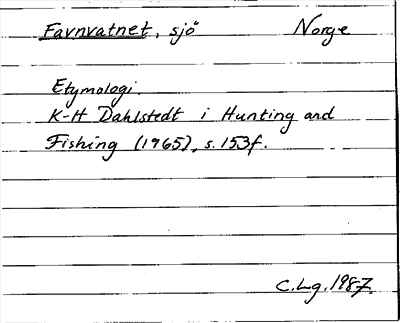 Favnvatnet, sjö Norge
Etymologi.
K-H Dahlstedt i Hunting and
Fishing (1965), s. 153f.
C.Lg. 1987.